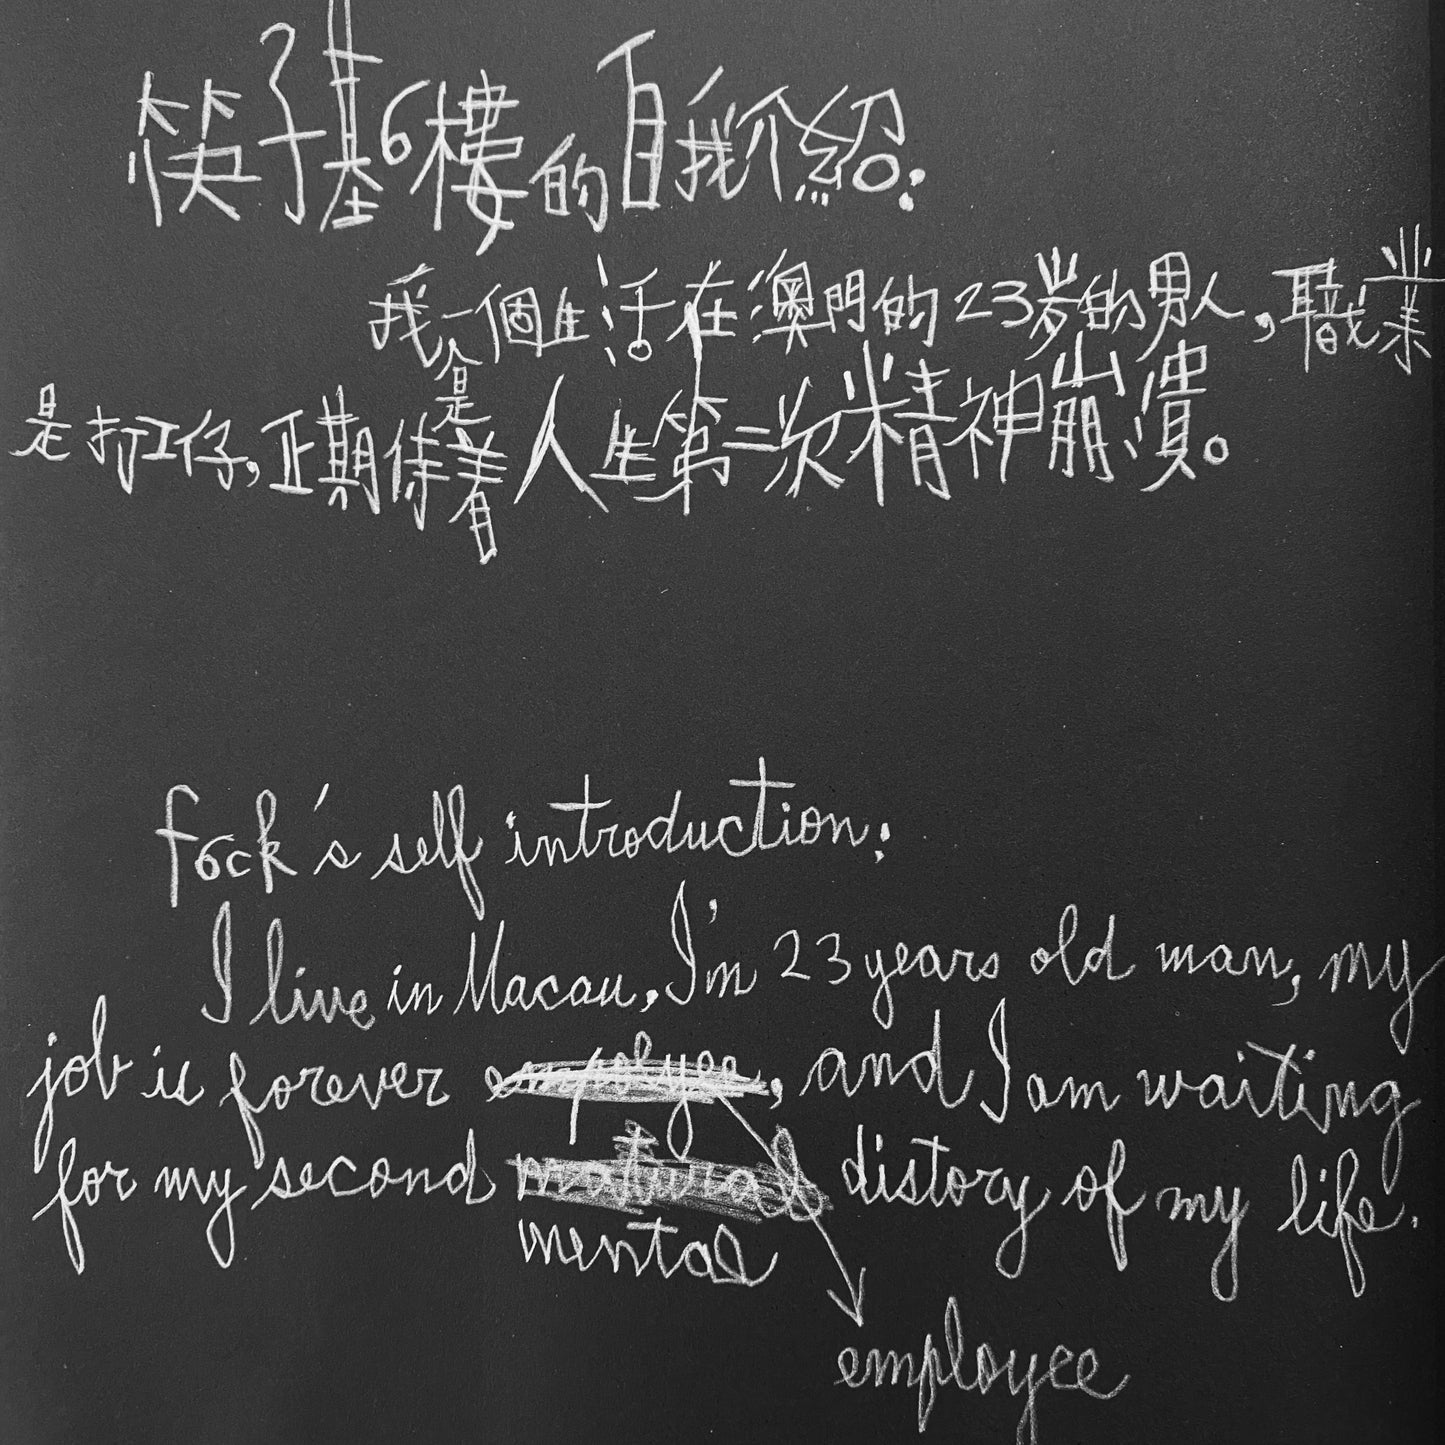 筷子基6樓的自我介紹:
我是一個生活在澳門的23岁的男人,職業
是打工仔,正期待着人生第二次精神崩潰。
f6ck's self introduction:
I live in Macau, I'm 23 years old man, my
job is forever employee, and I am waiting
for my second mental distory of my life.
employee